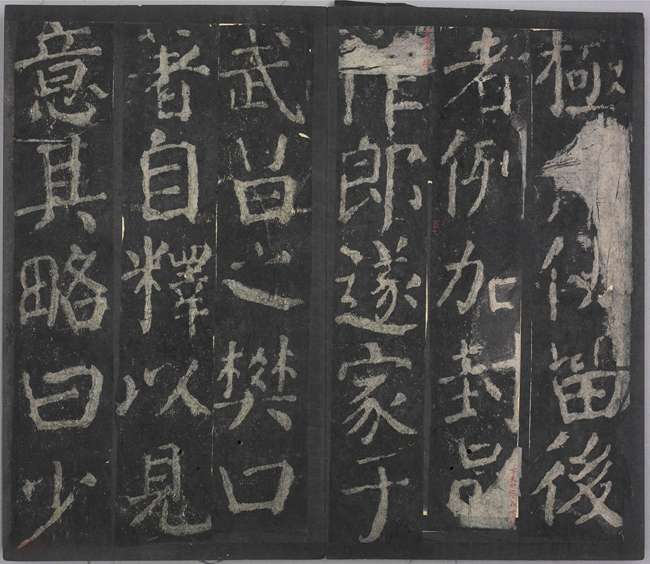 極使留後
者例加封
作郎遂家于
武昌之樊口
著自釋以見
意其略曰少